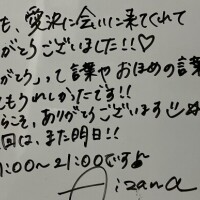 も、愛沢に会いに来てくれて
がとうございました!!♡
がとう」って言葉やおほめの言葉
てもうれしかたです!!
らこそ、ありがとうございます
回は、また明日!!
1:00〜21:00ですよ
Aizawa